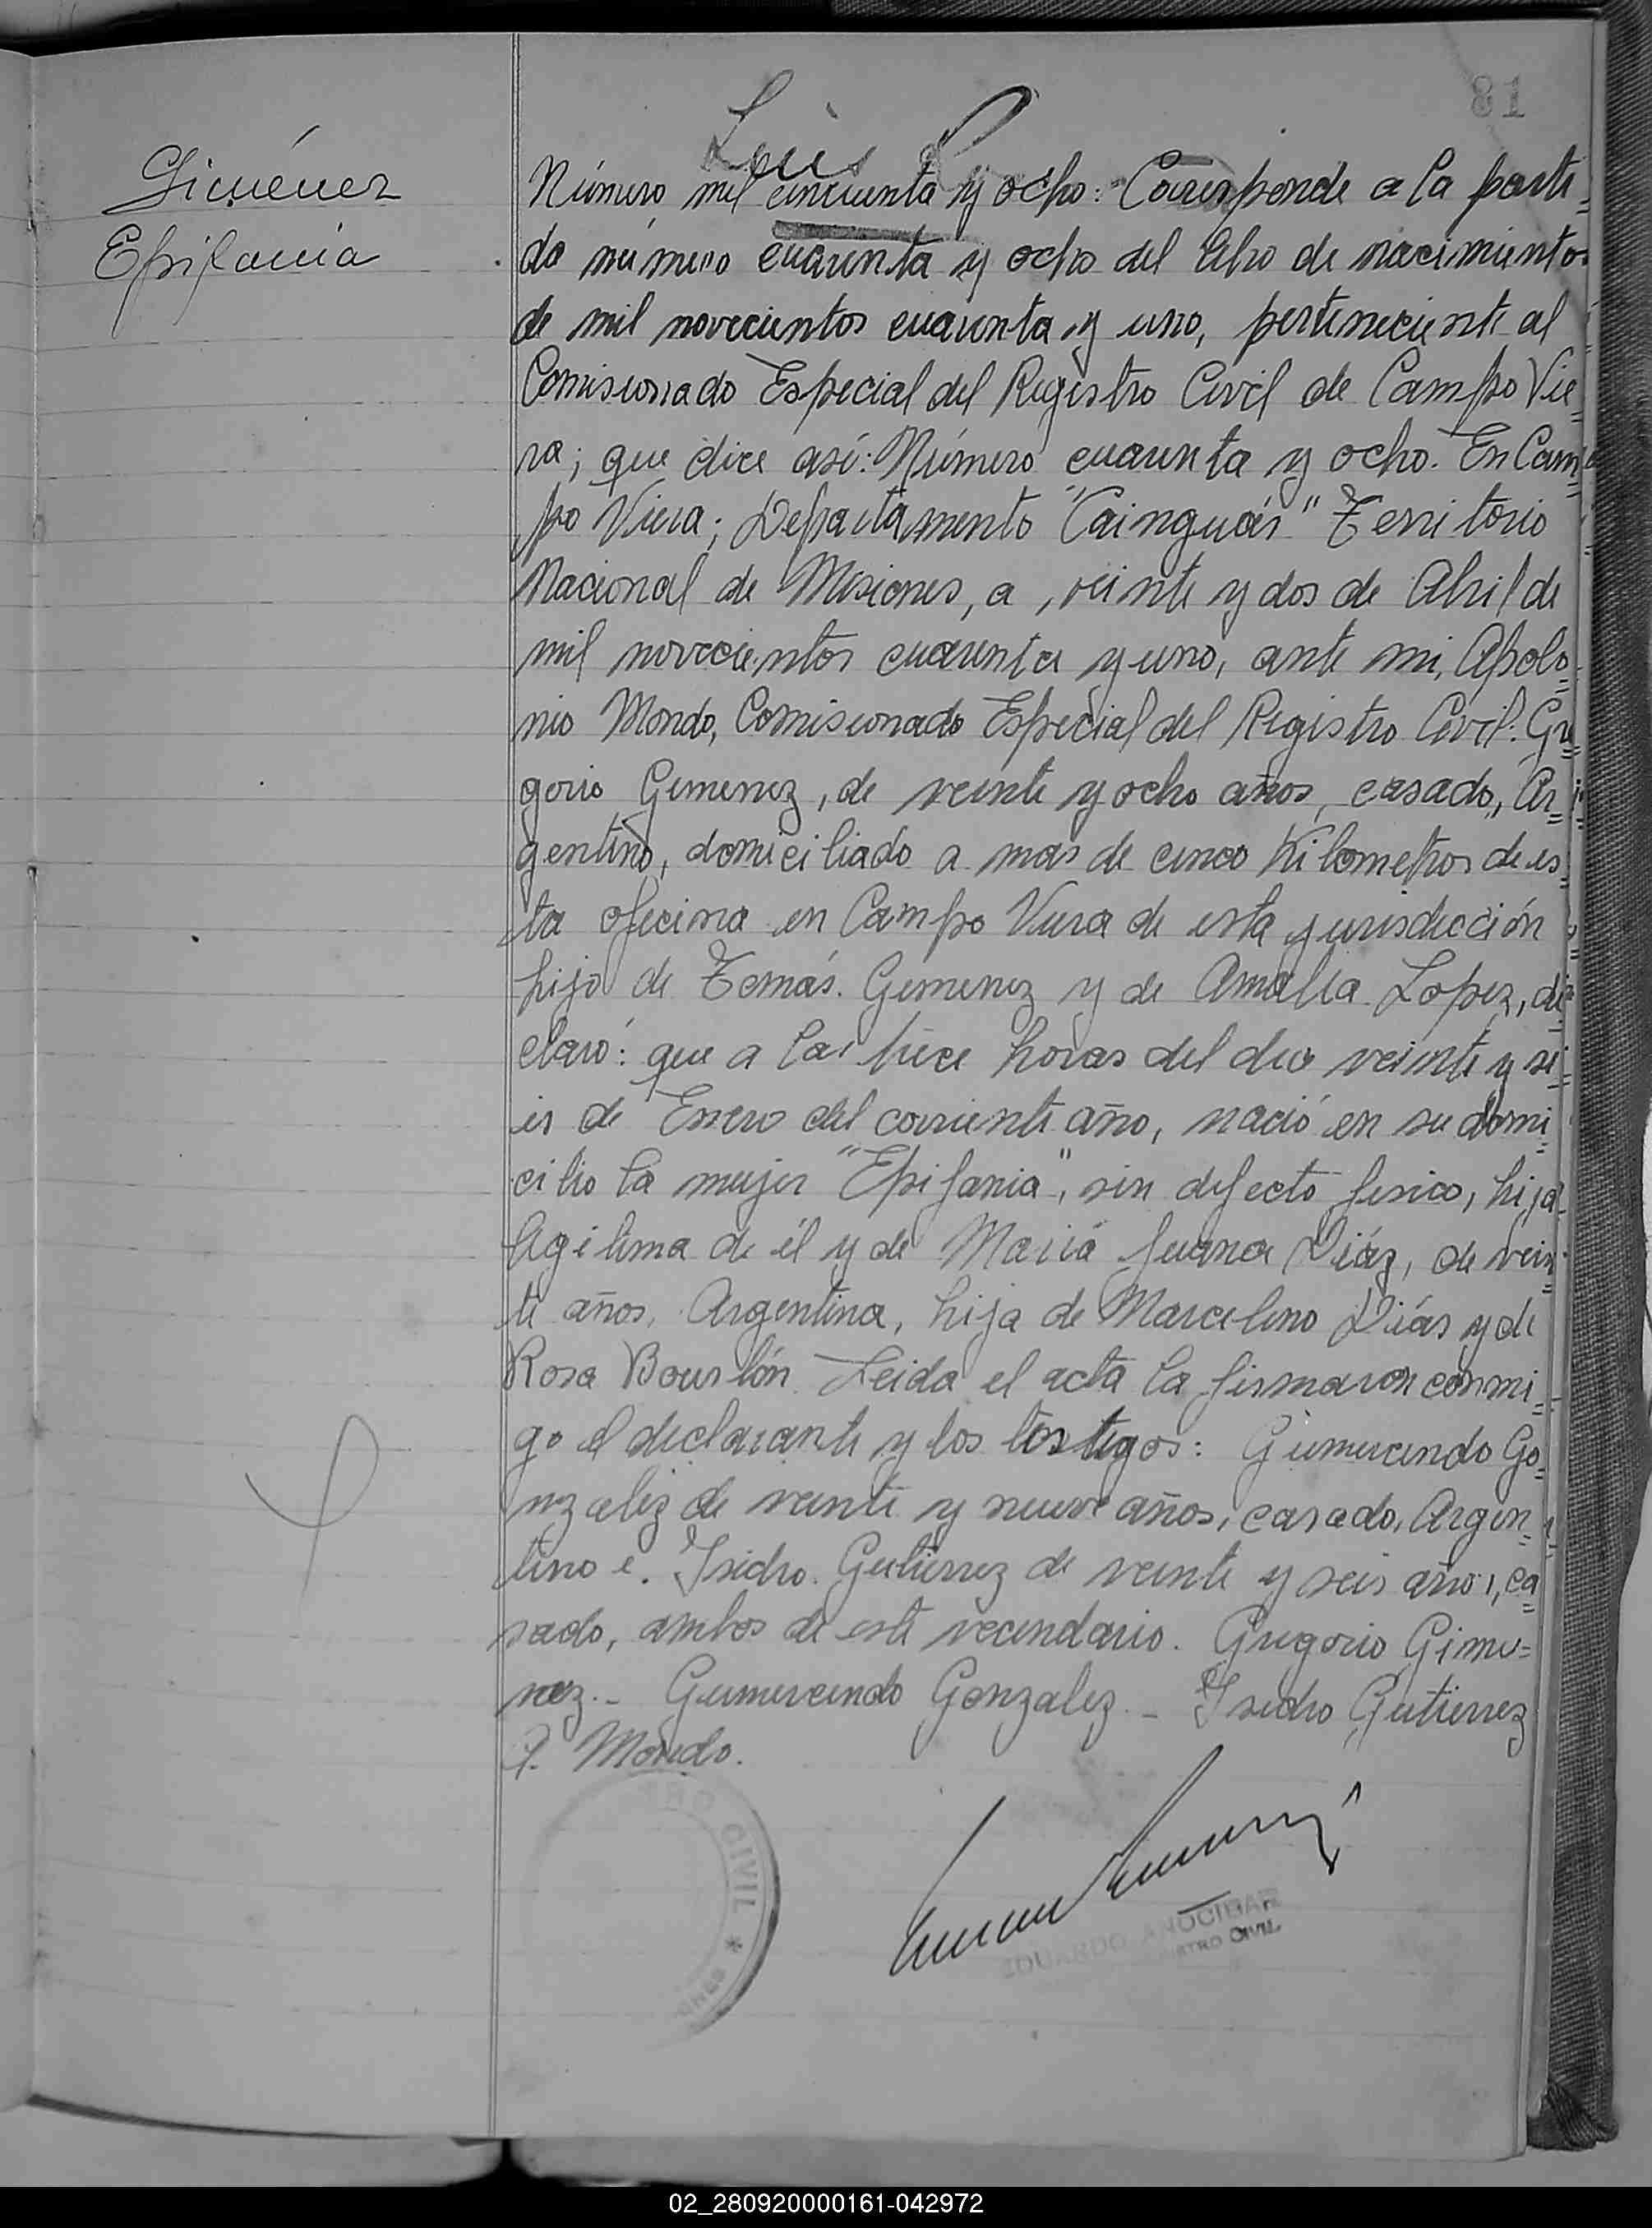 81
Luis
Giménez
Epifania
Número mil cincuenta y ocho: Corresponde a la parti=
da número cuarenta y ocho del libro de nacimientos
de mil novecientos cuarenta y uno, perteneciente al
Comisionado Especial del Registro Civil de Campo Vie=
ra; que dice así: Número cuarenta y ocho. En Cam=
po Viera; Departamento "Cainguás" Territorio
Nacional de Misiones, a, veinte y dos de Abril de
mil novecientos cuarenta y uno, ante mi, Apolo=
nio Mondo, Comisionado Especial del Registro Civil: Gre=
gorio Gimenez, de veinte y ocho años, casado, Ar=
gentino, domiciliado a mas de cinco Kilometros de es=
ta oficina en Campo Viera de esta jurisdicción
hijo de Tomás. Gimenez y de Amalia Lopez, de=
claró: que a las trece horas del dia veinte y se=
is de Enero del corriente año, nació en su domi=
cilio la mujer "Epifania", sin defecto fisico, hija
legitima de él y de Maria Juana Diáz, de vein=
te años, Argentina, hija de Marcelino Diás y de
Rosa Bourlón. Leida el acta la firmaron conmi=
go el declarante y los testigos: Gumercindo Go=
nzalez de veinte y nueve años, casado, Argen=
tino e. Isidro. Gutierrez de veinte y seis años, ca=
sado, ambos de este vecindario. Gregorio Gime=
nez.- Gumercindo Gonzalez.- Isidro Gutierrez
A. Mondo.
CIVIL *
EDUARDO ANOCIBAR
REGISTRO CIVIL
02_280920000161-042972